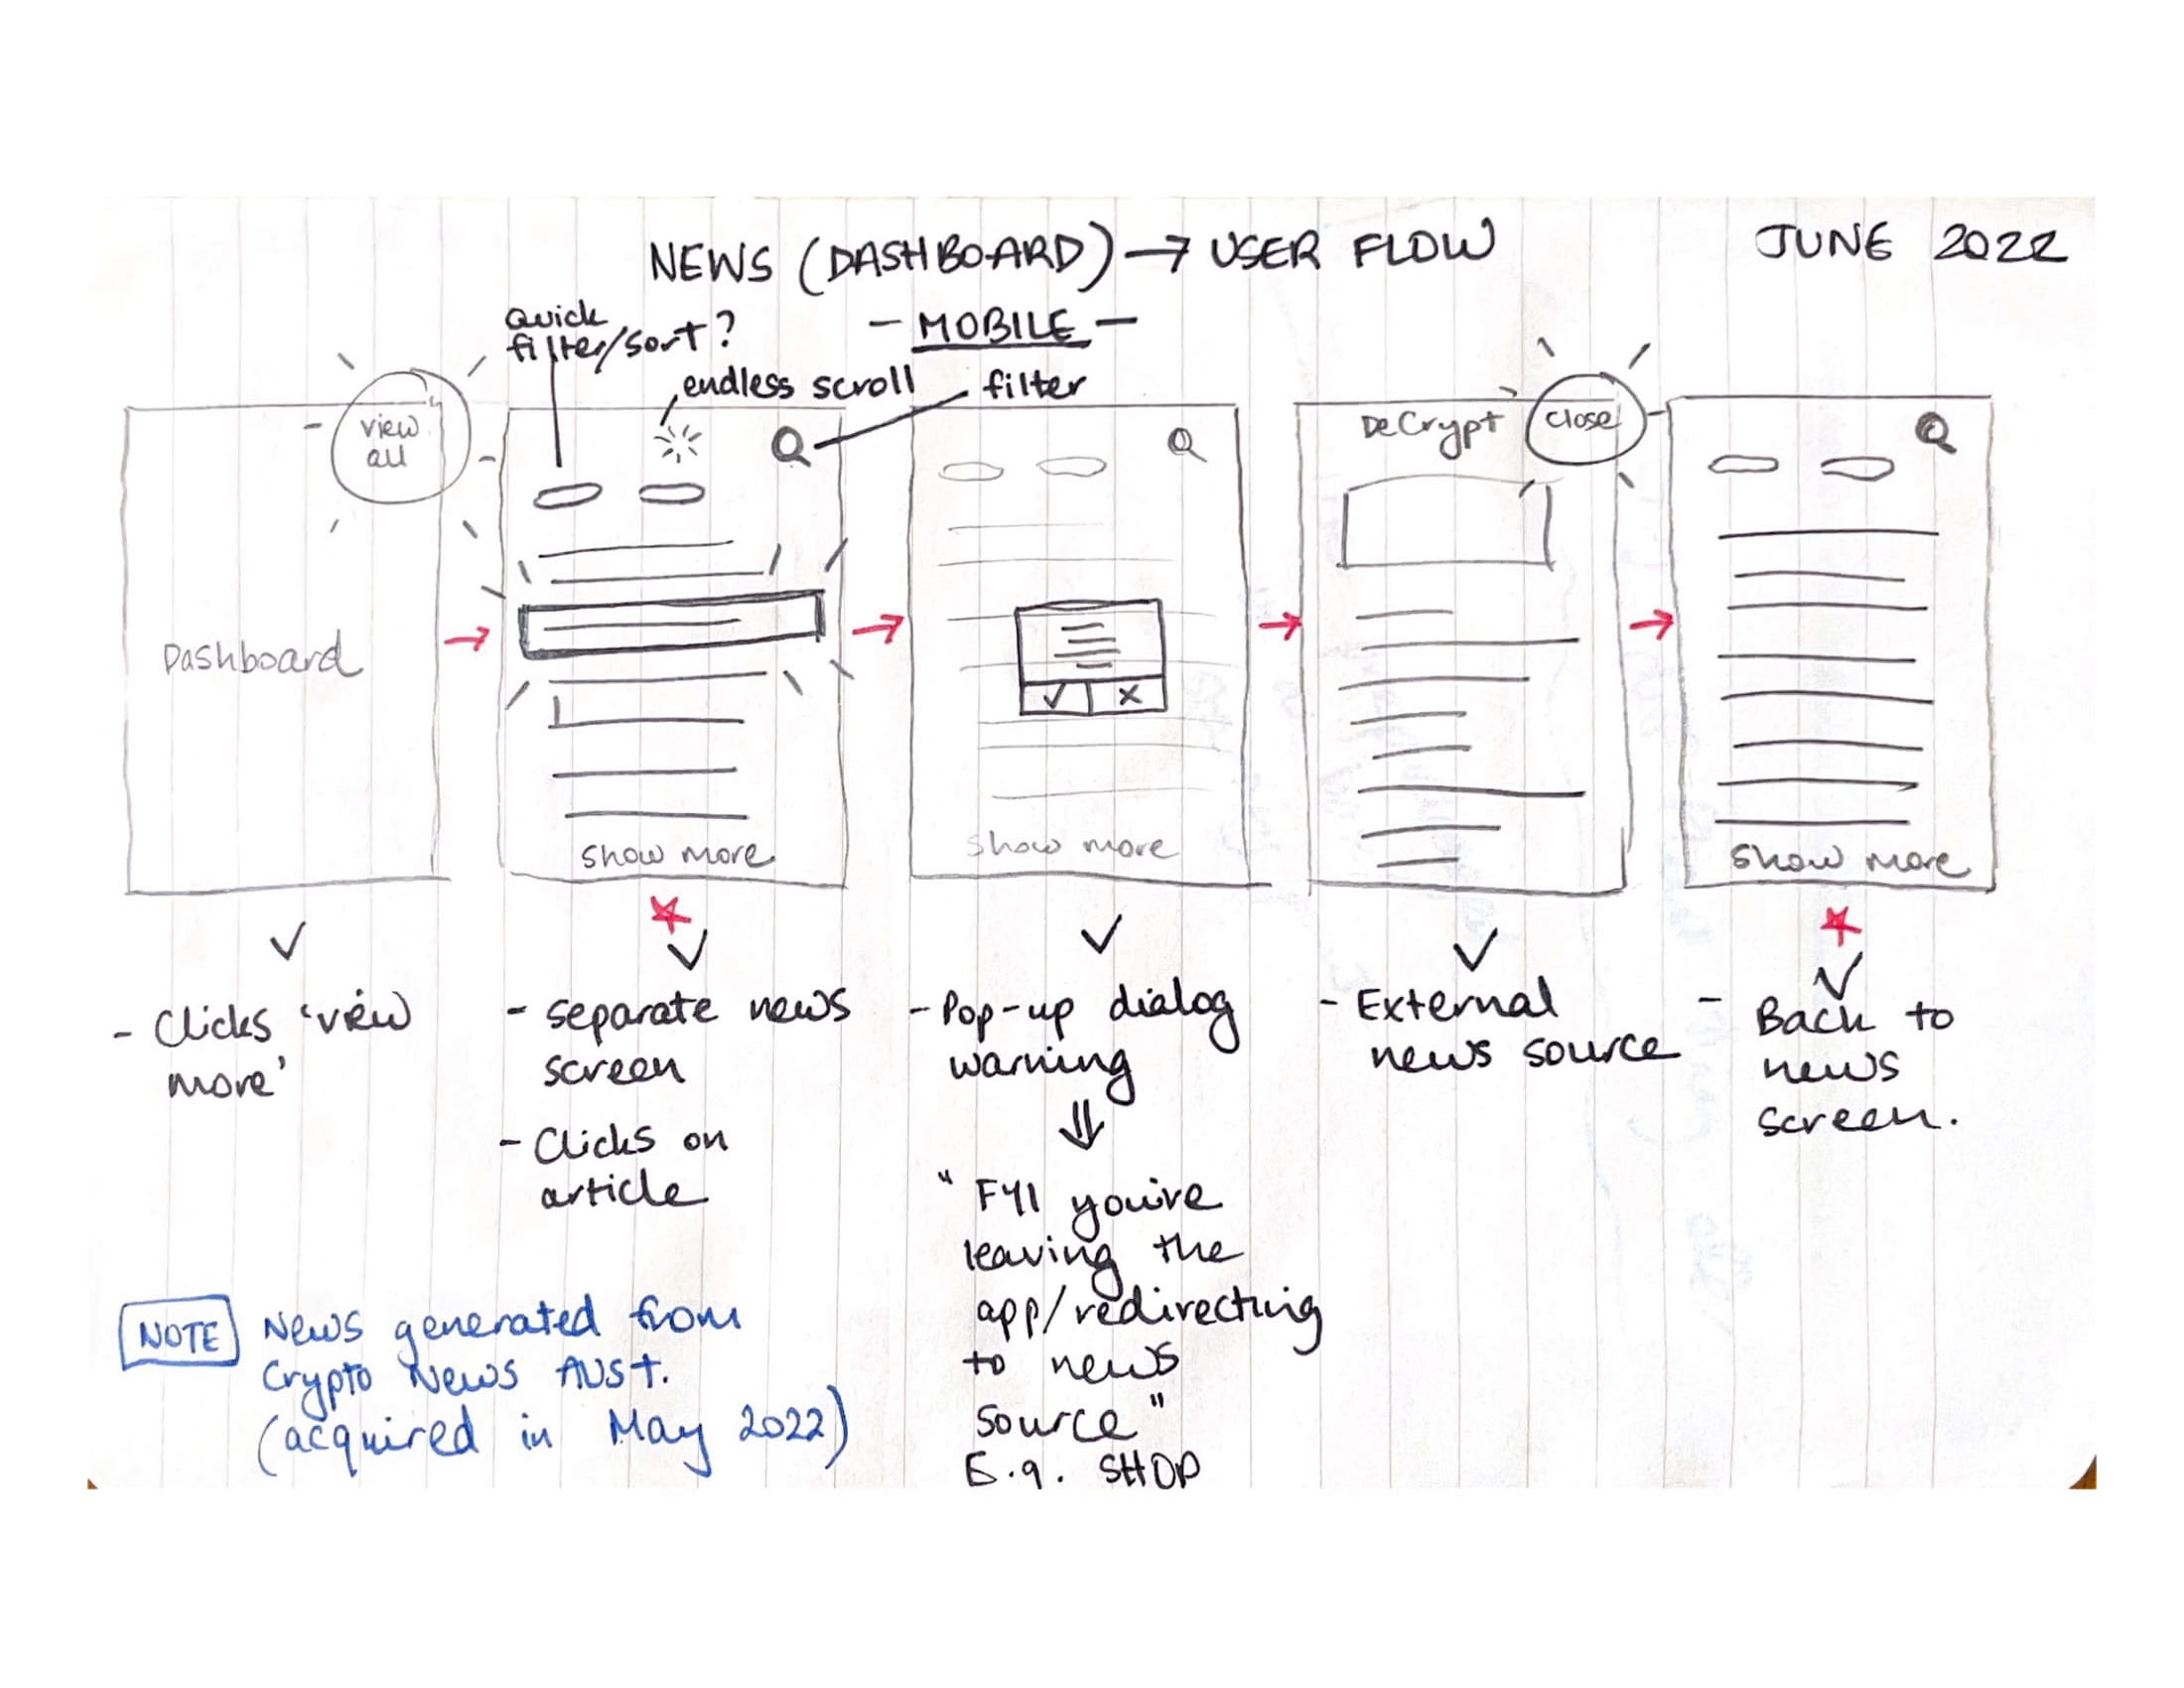 NEWS (DASHBOARD) → USER FLOW
JUNE 2022
- MOBILE -
Quick
filter/sort?
endless scroll
filter
view
all
Dashboard
show more
show more
DeCrypt
close
show more
- Clicks 'view
more'
- separate news
screen
- Clicks on
article
- Pop-up dialog
warning
"FYI you're
leaving the
app/redirecting
to news
source"
E.g. SHOP
- External
news source
- Back to
news
screen.
NOTE
News generated from
Crypto News Aust.
(acquired in May 2022)